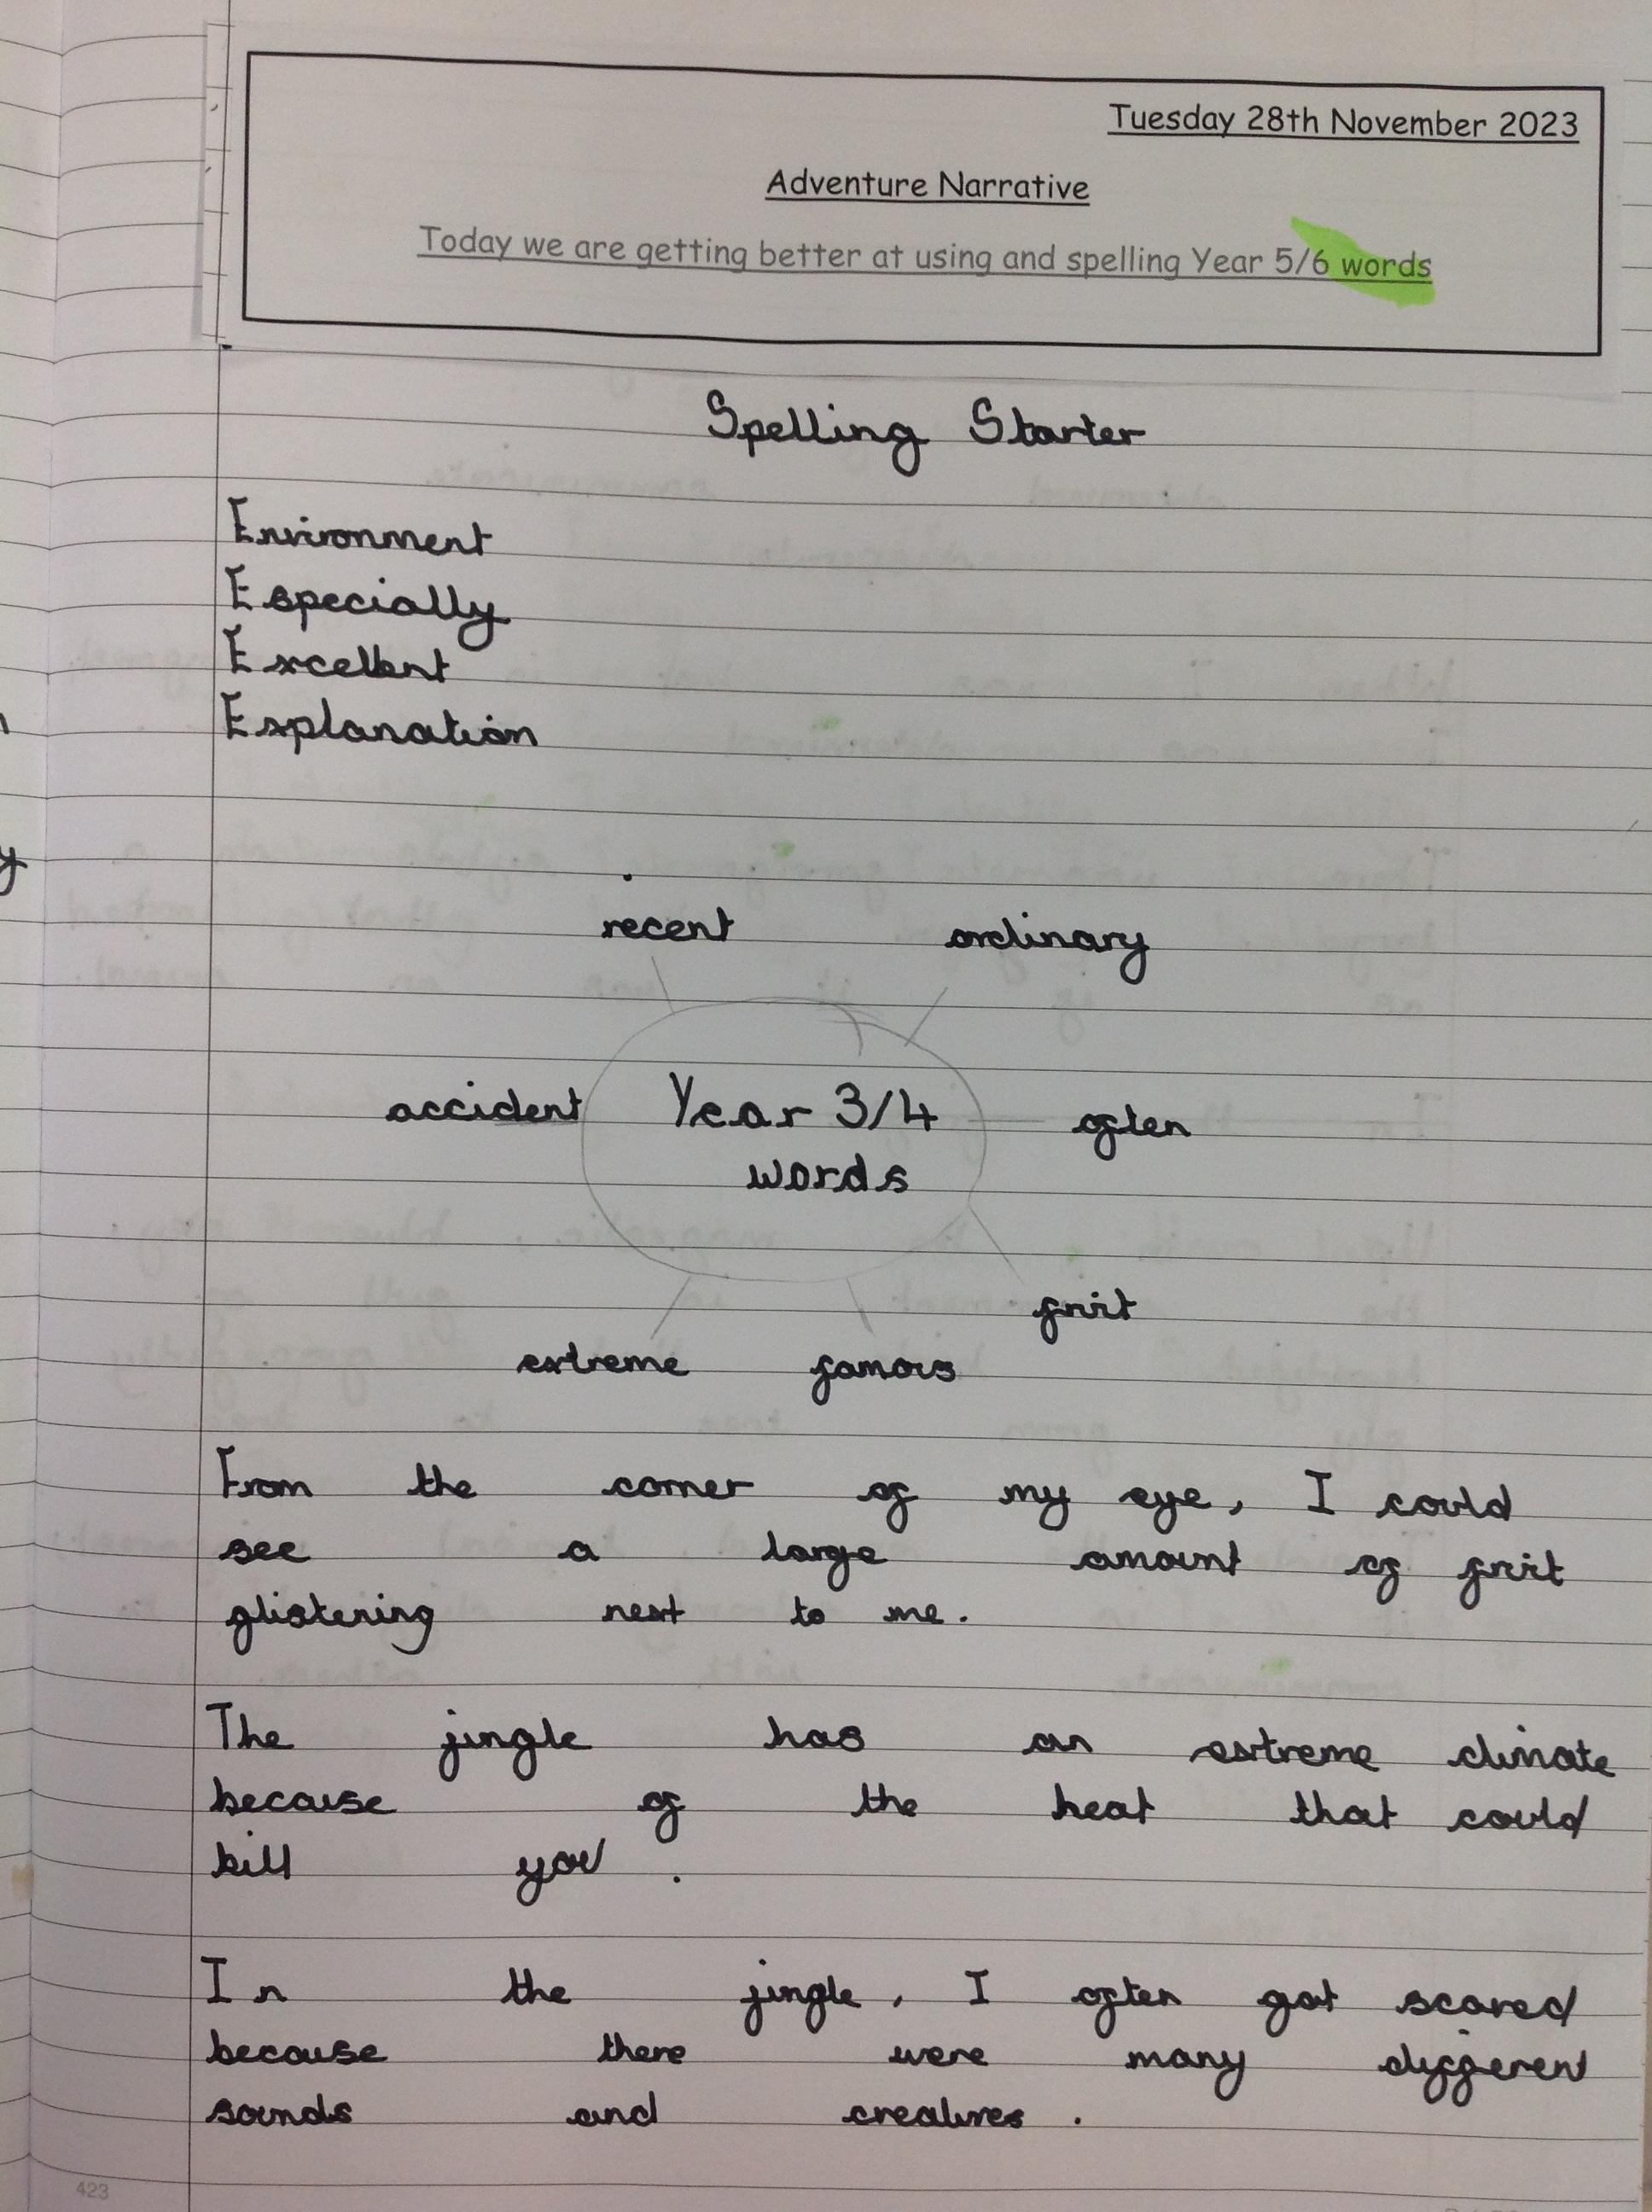 Tuesday 28th November 2023
Adventure Narrative
Today we are getting better at using and spelling Year 5/6 words
Spelling Starter
Environment
Especially
Excellent
Explanation
recent ordinary
accident Year 3/4 often
words
fruit
extreme famous
From the corner of my eye, I could
see a large amount of fruit
glistening next to me.
The jungle has an extreme climate
because of the heat that could
kill you.
In the jungle, I often got scared
because there were many different
sounds and creatures.
423